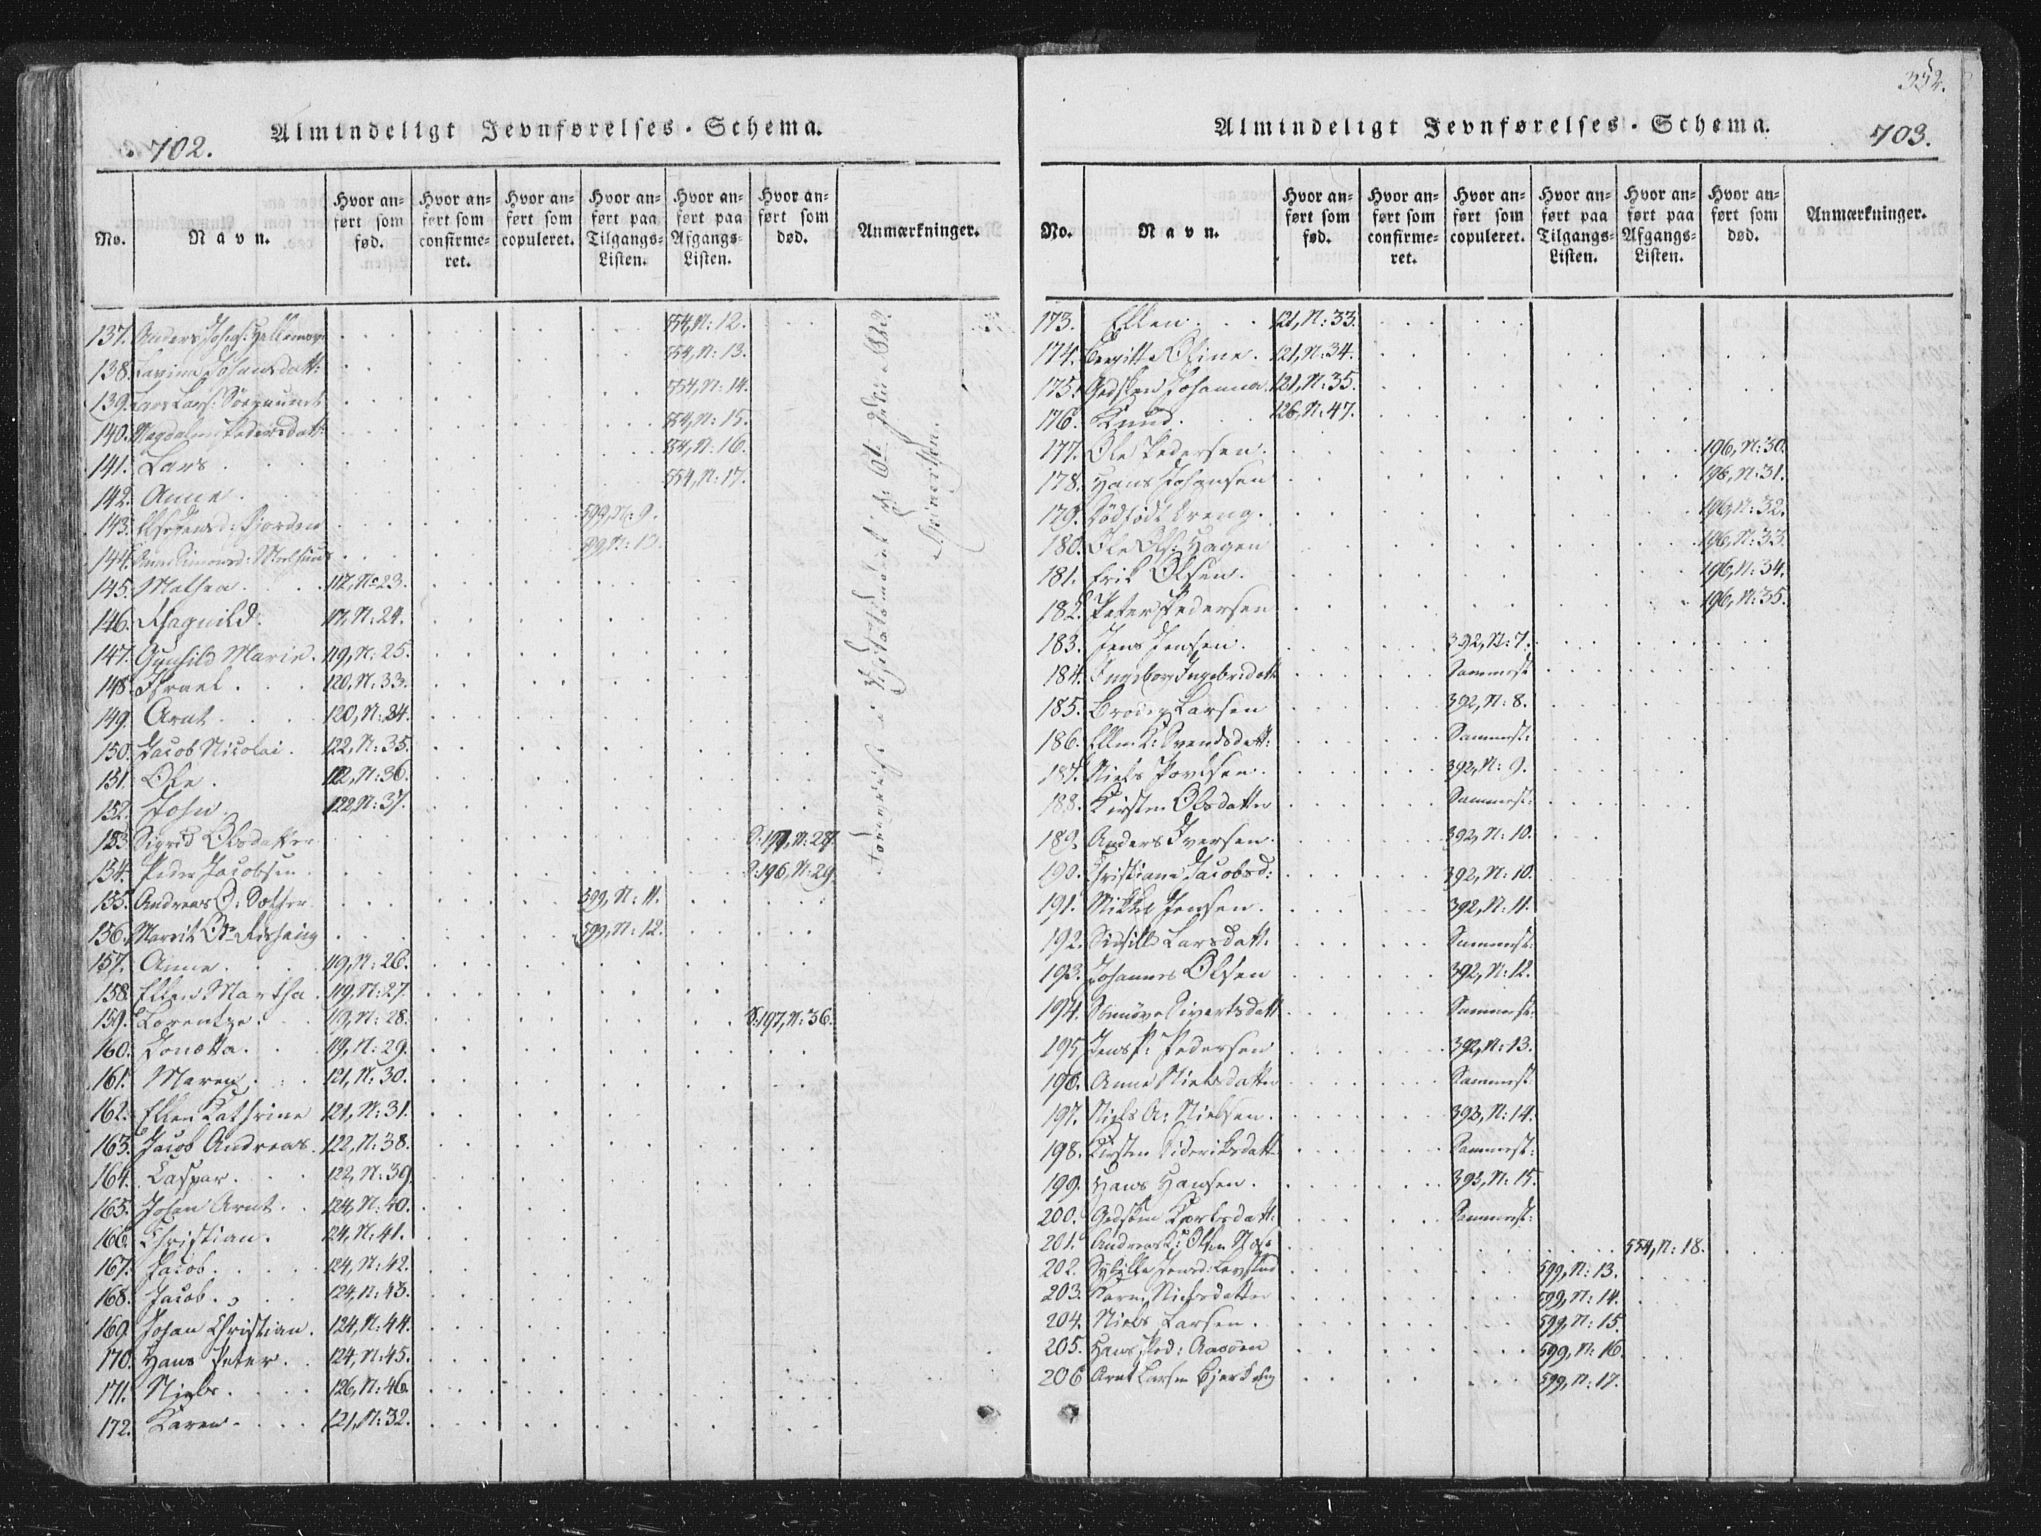 702.
Almindeligt Jevnførelses-Schema.
No.
Navn.
Hvor anført som fød.
Hvor anført som confirmeret.
Hvor anført som copuleret.
Hvor anført paa Tilgangs-Listen.
Hvor anført paa Afgangs-Listen.
Hvor anført som død.
Anmærkninger.
137. Anders 554, N: 12.
138. 554, N: 13.
139. Lars Lars: 554, N: 14.
140. Magdalena Pedersdatt: 554, N: 15.
141. Lars 554, N: 16.
142. Anne. 554, N: 17.
143. 599, N: 9.
144. 599, N: 10.
145. Mathea. 117, No 23.
146. Ragnild. 17, N: 24.
147. Gunhild Marie. 119, N: 25.
148. Israel. 120, N: 33.
149. Arnt. 120, N: 34.
150. Jacob Nicolai. 122, N: 35.
151. Ole. 122, N: 36.
152. John. 122, N: 37.
153. Sigrid Olsdatter N: 28.
154. Peder Jacobsen 196, N: 29.
155. Andreas O: 599, N: 11.
156. Marrit 599, N: 12.
157. Anne. 119, N: 26.
158. Ellen Martha. 119, N: 27
159. Lorentze. 119, N: 28. S: 197, N: 36.
160. Jonetta. 119, N: 29.
161. Maren. 121, N: 30.
162. Ellen Kathrine 121, N: 31.
163. Jacob Andreas. 122, N: 38.
164. Caspar. 122, N: 39.
165. Johan Arnt. 124, N: 40.
166. Christian. 124, N: 41.
167. Jacob. 124, N: 42.
168. Jacob. 124, N: 43.
169. Johan Christian. 124, N: 44.
170. Hans Peter. 124, N: 45.
171. Niels. 126, N: 46.
172. Karen. 121, N: 32.
352.
Almindeligt Jevnførelses-Schema.
703.
No.
Navn.
Hvor anført som fød.
Hvor anført som confirmeret.
Hvor anført som copuleret.
Hvor anført paa Tilgangs-Listen.
Hvor anført paa Afgangs-Listen.
Hvor anført som død.
Anmærkninger.
173. Ellen. 121, N: 33.
174. Beritte Oline. 121, N: 34.
175. Gedsken Johanna. 121, N: 35.
176. Knud. 126, N: 47.
177. Ole Pedersen. 196, N: 30.
178. Hans Johansen 196, N: 31.
179. Dødfødt Dreng. 196, N: 32.
180. Ole Ols: Hagen 196, N: 33.
181. Erik Olsen. 196, N: 34.
182. Peter Pedersen 196, N: 35.
183. Jens Jensen. 392, N: 7.
184. Ingebor Ingebrdatt Sammest:
185. Larsen 392, N: 8.
186. Ellen K: Svendsdatt: Sammest:
187. Niels Povelsen. 392, N: 9.
188. Kirsten Olsdatter Sammest:
189. Anders Iversen. 392, N: 10.
190. Christiana Jacobsd: 392, N: 10.
191. Mikkel Jensen. 392, N: 11.
192. Sidsille Larsdatt. Sammest:
193. Johannes Olsen 392, N: 12.
194. Sivertsdatt Sammest:
195. Jens P: Pedersen 392, N: 13.
196. Anne Nielsdatter Sammest:
197. Niels A: Nielsen. 393, N: 14.
198. Kirsten Sideriksdatt Sammest:
199. Hans Hansen. 393, N: 15.
200. Gedsken Sammest:
201. Andreas K: Olsen 554, N: 18.
202. 599, N: 13.
203. Karen Nielsdatter 599, N: 14.
204. Niels Larsen. 599, N: 15.
205. Hans Ped: 599, N: 16.
206 Arnt Larsen 599, N: 17.